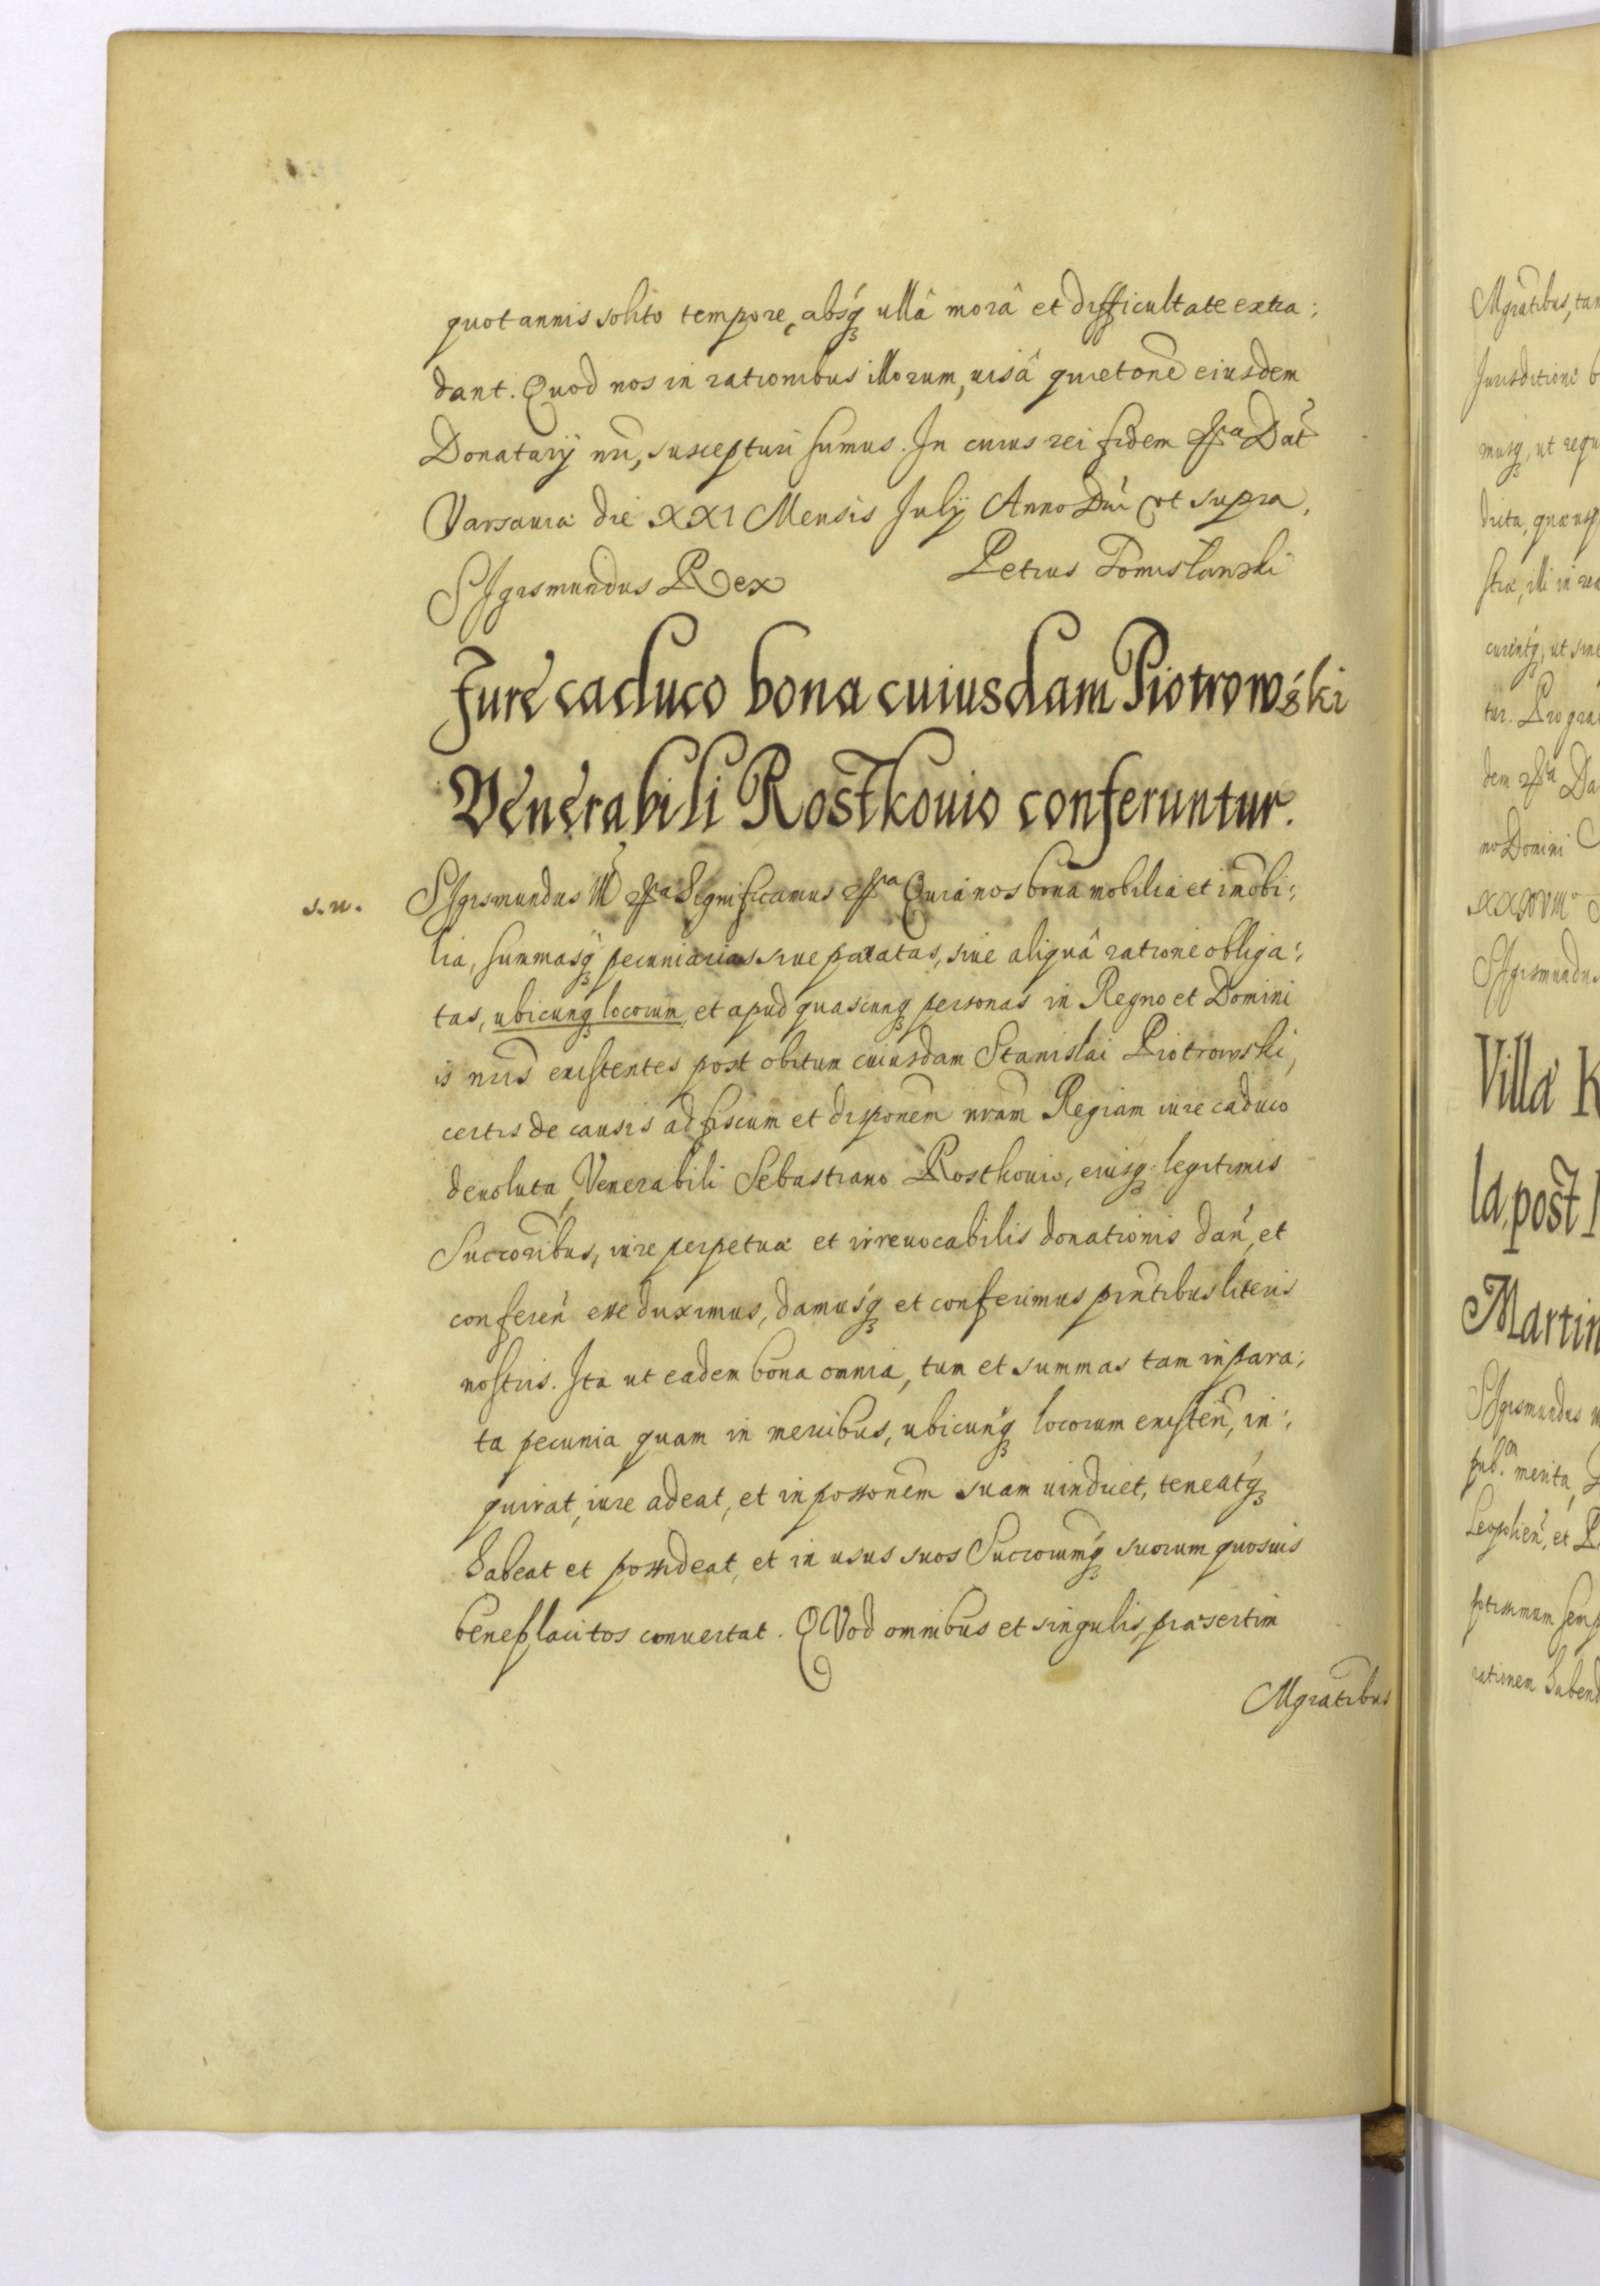 quotannis solito tempore, absq́ʒ ullâ morâ et difficultate extra:
dant. Quod nos in rationibus illorum, uisâ quietone eiusdem
Donatarij nri, suscepturi sumus. In cuius rei fidem Dat
Varsauiæ die XXI Mensis Julij Anno Dni vt supra,
SIgismundus Rex Petrus Tomislawski
Jure caduco bona cuiusdam Piotrowski
Venerabili Rostkouio conferuntur.
s.n. SIgismundus III Significamus Quia nos bona mobilia et imobi:
lia, summasqʒ pecuniarias siue paratas, siue aliquâ ratione obliga:
tas, ubicunqʒ locorum, et apud quascunqʒ personas in Regno et Domini
is nris existentes post obitum cuiusdam Stanislai Piotrowski,
certis de causis ad fiscum et disponem nram Regiam iure caduco
deuoluta, Venerabili Sebastiano Rostkouio, eiusqʒ legitimis
Succoribus, iure perpetuæ et irreuocabilis donationis dan, et
conferen esse duximus, damusqʒ et conferimus pntibus literis
nostris. Ita ut eadem bona omnia, tum et summas tam in para:
ta pecunia quam in mercibus, ubicunqʒ locorum existen, in:
quirat, iure adeat, et in possonem suam uindicet, teneatqʒ
habeat et possideat, et in usus suos Succorumqʒ suorum quosuis
beneplacitos conuertat. QVod omnibus et singulis, præsertim
Mgratibus
Mgratibus, tam
Jurisditione
musqʒ, ut
dicta,
stræ, illi in
curentqʒ, ut
tur. Pro
dem Da
no Domini
SIgismundus
Villa K
la, post
Martin
SIgismundus
merita,
Leopolien, et
potissimum semp
rationem habend